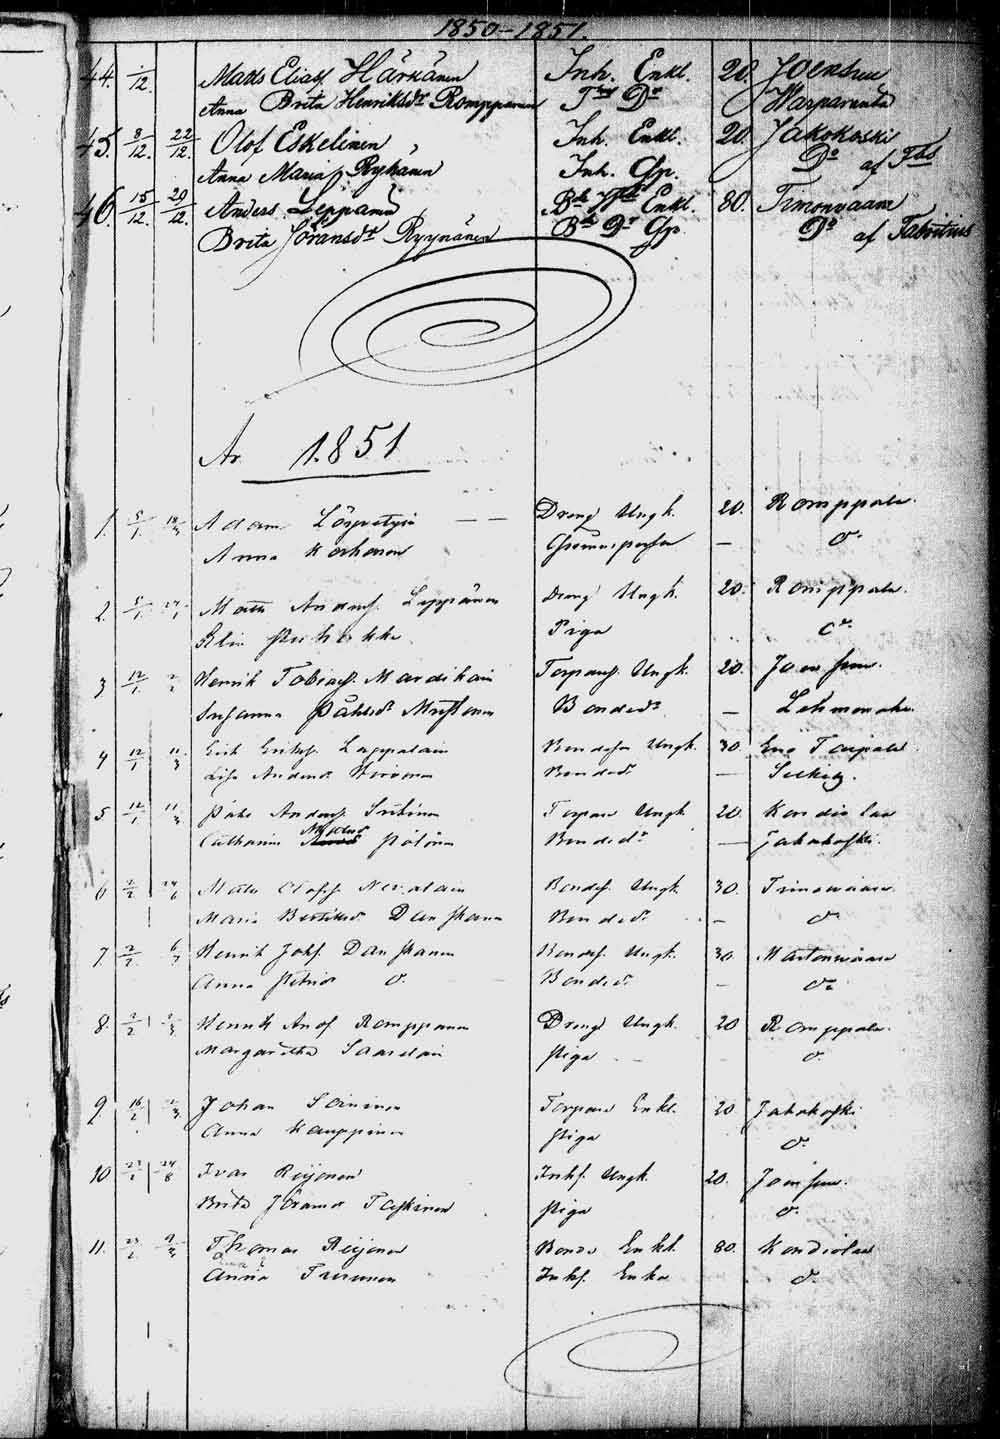 1850-1851.
44. /12. Matts Eliass Härkänen Inh. Enkl. 20. Joensuu
Anna Brita Henriksdr Romppanen Dr Warparanta
45. 8/12. 22/12. Olof Eskelinen Inh. Enkl. 20. Jakokoski
Anna Maria Ryhänen Inh. Gp. Do af Fbs
46. 15/12. 29/12. Anders Leppänen Enkl. 80. Timonvaara
Brita Jöransdr Ryynänen Bd Dr Gp. Do af Fabritius
År 1851
1. 5/1. Adam Dreng Ungk. 20. Romppala
Anna Korhonen — do.
2. 5/1. Matts Anderss. Leppänen Dreng Ungk. 20. Romppala.
Elin Piga do.
3 12/1 2/2 Henrik Tobiass. Mardikain Torpares. Ungk. 20. Joensuu.
Susanna Påhlsdr Mustonen Bondedr — Lehmonaho.
4 12/1 11/3 Erik Erikss. Lappalain Bondeson Ungk. 30. Eno
Lisa Andersdr Hirvonen Bondedr —
5 12/1 11/3 Påhl Anderss. Torpare Ungk 20. Kondiolax
Catharina Mattsdr Pölönen Bondedr — Jakokoski.
6 2/2 24/6 Matts Olofss. Nevalain Bondes. Ungk. 30. Timovaara
Maria Bertilsdr Danskanen Bondedr. — do.
7. 2/2. 6/7 Henrik Johss. Danskanen Bondes. Ungk. 30. Martonvaara
Anna Petrisdr do. Bondedr. — do.
8. 2/2 2/3 Henrik And. Romppanen Dreng Ungk. 20 Romppala.
Margaretha Saarelain Piga do.
9. 16/2 2/3 Johan Soininen Torpare Enkl. 20 Jakokoski
Anna Kauppinen Piga do.
10 23/2 24/8 Ivar Reijonen Inhs. Ungk. 20. Joensuu.
Brita Jöransdr Taskinen Piga do.
11. 23/2 9/3 Thomas Reijonen Bonde Enkl. 80. Kondiolax
Anna Turunen Inhs. Enka do.